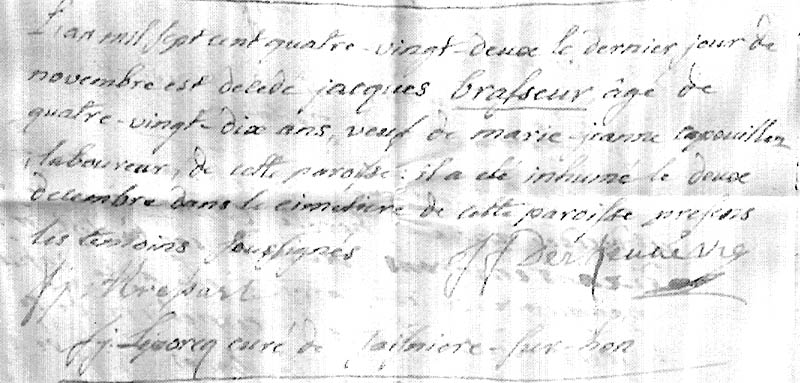 L'an mil sept cent quatre-vingt-deux le dernier jour de
novembre est décédé jacques brasseur âgé de
quatre-vingt-dix ans, veuf de marie-jeanne
laboureur, de cette paroisse. il a été inhumé le deux
decembre dans le cimetiere de cette paroisse presens
les temoins soussignés
curé de sur-hon